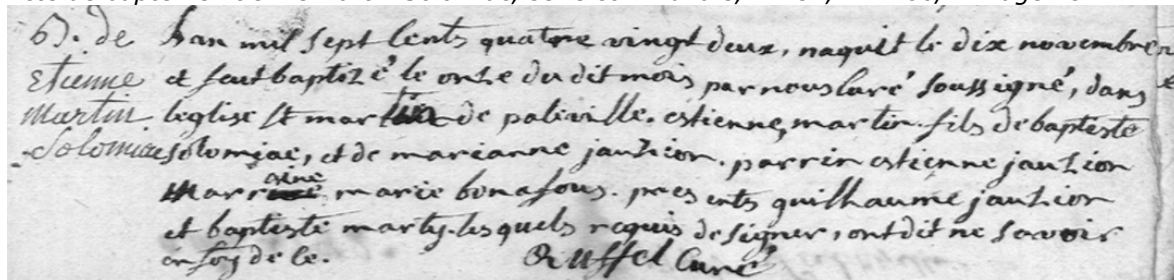 B. de
Etienne
Martin
Solomiac
Lan mil sept cents quatre vingt deux, naquit le dix novembre
et feut baptizé le onze du dit mois par nous curé soussigné, dans
leglise st martin de paleville, estienne, martin fils de baptiste
solomiac, et de marianne jauzion. parrin estienne jauzion
marrine marie bonafous. presents guilhaume jauzion
et baptiste martÿ lesquels requis de signer, ont dit ne savoir
en foy de ce. Ruffel Curé